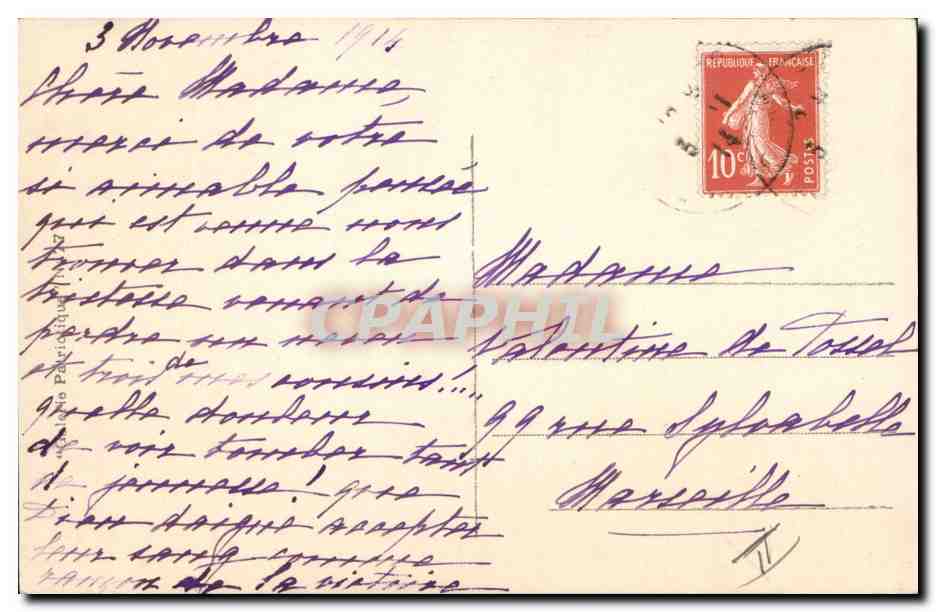 3 Novembre 1914
Chère Madame,
merci de votre
si aimable pensée
qui est venue nous
trouver dans la
tristesse venant de
perdre un neveu
et trois de mes cousins!!!
quelle douleur
de voir tomber tant
de jeunesse! que
Dieu daigne accepter
leur sang comme
rançon de la victoire
REPUBLIQUE FRANÇAISE
10 c
POSTES
Madame
Valentine de Tossel
99 rue Sylvabelle
Marseille
II
CPAPHIL